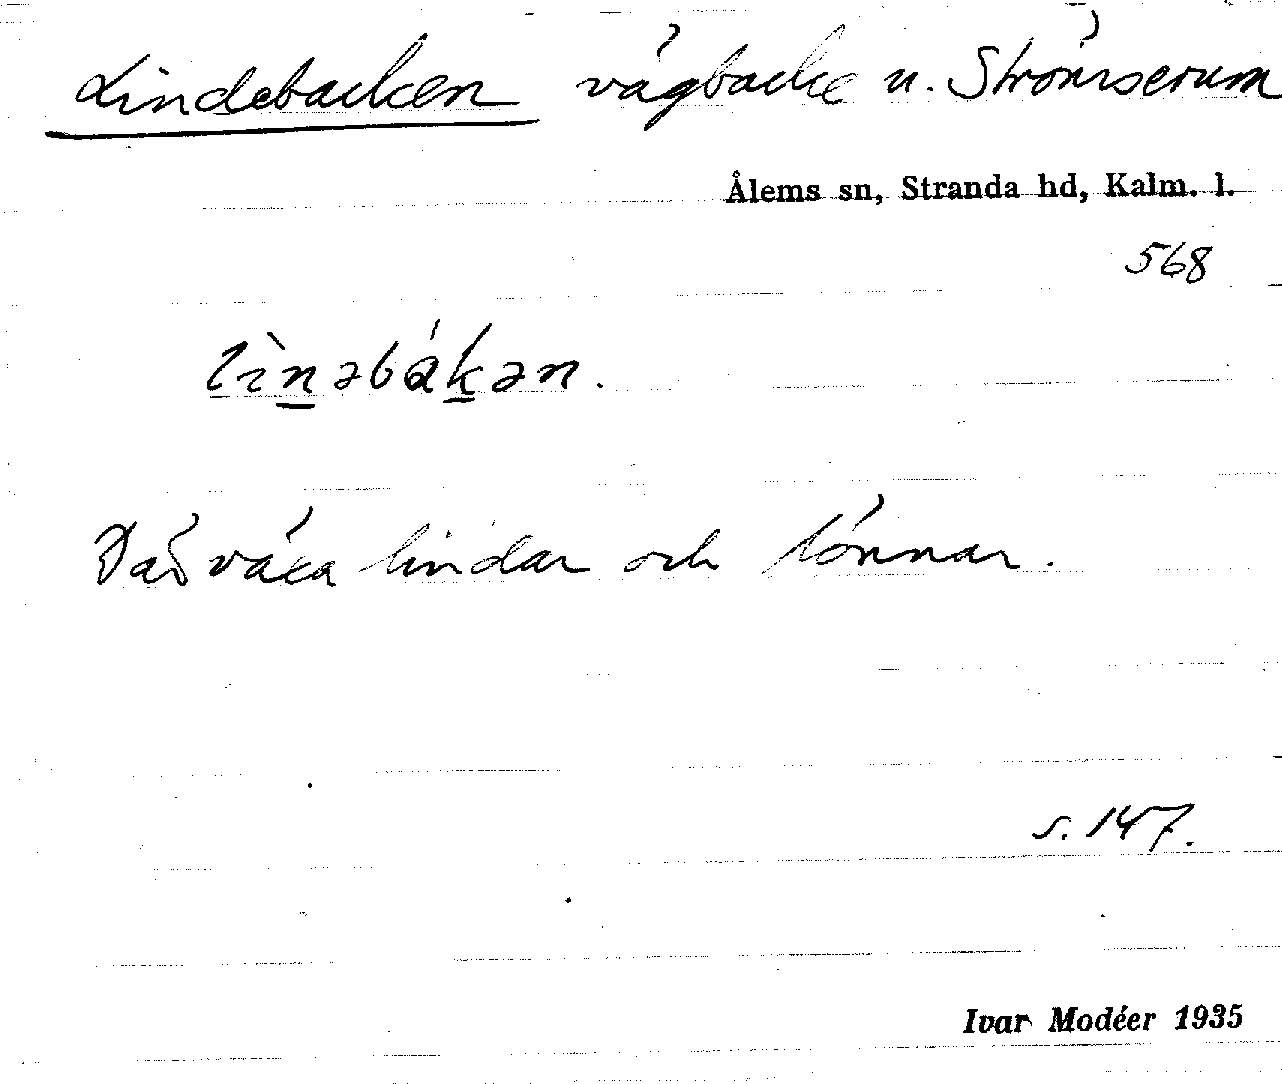 Lindebacken vägbacke u. Strömserum
Ålems sn, Stranda hd, Kalm. l.
568
lìnəbákən.
Där växa lindar och lönnar.
s. 147.
Ivar Modéer 1935